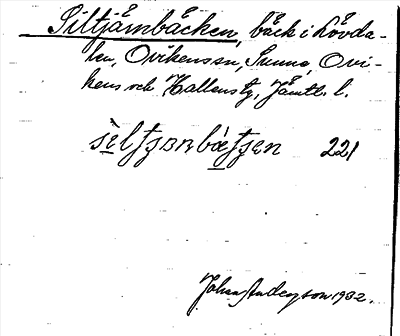 Siltjärnbäcken, bäck i Lövda-
len, Ovikens sn, Sunne, Ovi-
kens och Hallens tg, Jämtl. l.
221
Johan Andersson 1932.